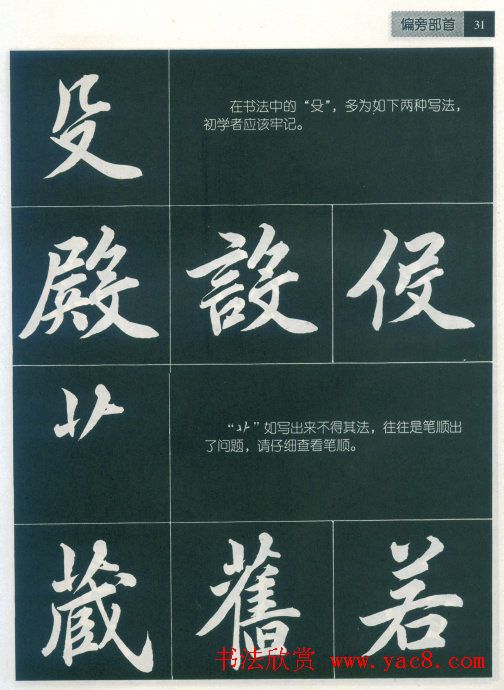 偏旁部首 31
殳
在书法中的“殳”，多为如下两种写法，
初学者应该牢记。
殿 設 役
艹
“艹”如写出来不得其法，往往是笔顺出
了问题，请仔细查看笔顺。
藏 舊 若
书法欣赏 www.yac8.com